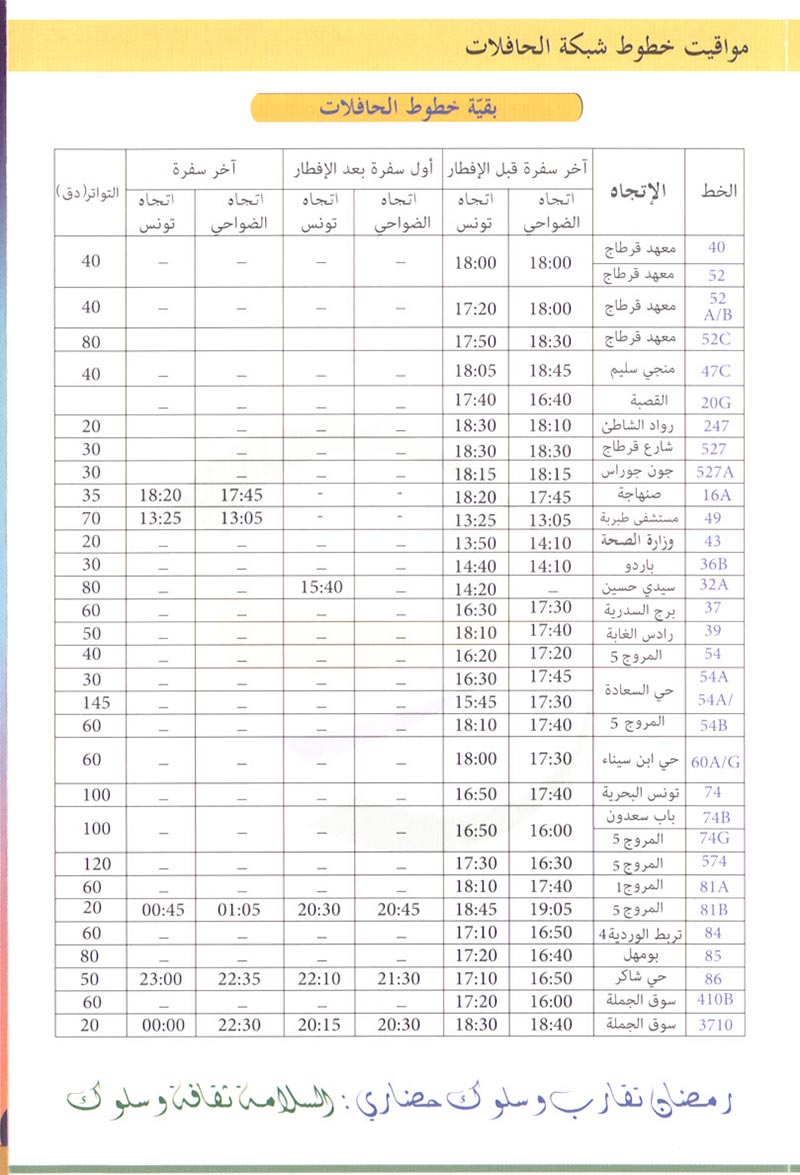 مواقيت خطوط شبكة الحافلات
بقيّة خطوط الحافلات
الخط الإتجاه آخر سفرة قبل الإفطار أول سفرة بعد الإفطار آخر سفرة التواتر(دق)
اتجاه الضواحي اتجاه تونس اتجاه الضواحي اتجاه تونس اتجاه الضواحي اتجاه تونس
40 معهد قرطاج 18:00 18:00 – – – – 40
52 معهد قرطاج
52 A/B معهد قرطاج 18:00 17:20 – – – – 40
52C معهد قرطاج 18:30 17:50 80
47C منجي سليم 18:45 18:05 – – – – 40
20G القصبة 16:40 17:40 – – – –
247 رواد الشاطئ 18:10 18:30 – – – – 20
527 شارع قرطاج 18:30 18:30 – – – 30
527A جون جوراس 18:15 18:15 – – – 30
16A صنهاجة 17:45 18:20 - - 17:45 18:20 35
49 مستشفى طبربة 13:05 13:25 - - 13:05 13:25 70
43 وزارة الصحة 14:10 13:50 – – – – 20
36B باردو 14:10 14:40 – – – – 30
32A سيدي حسين – 14:20 – 15:40 – – 80
37 برج السدرية 17:30 16:30 – – – – 60
39 رادس الغابة 17:40 18:10 – – – – 50
54 المروج 5 17:20 16:20 – – – – 40
54A حي السعادة 17:45 16:30 – – – – 30
54A/ 17:30 15:45 – – – – 145
54B المروج 5 17:40 18:10 – – – – 60
60A/G حي ابن سيناء 17:30 18:00 – – – – 60
74 تونس البحرية 17:40 16:50 – – – – 100
74B باب سعدون 16:00 16:50 – – – – 100
74G المروج 5
574 المروج 5 16:30 17:30 – – – – 120
81A المروج1 17:40 18:10 – – – – 60
81B المروج 5 19:05 18:45 20:45 20:30 01:05 00:45 20
84 تربط الوردية4 16:50 17:10 – – – – 60
85 بومهل 16:40 17:20 – – – – 80
86 حي شاكر 16:50 17:10 21:30 22:10 22:35 23:00 50
410B سوق الجملة 16:00 17:20 – – – – 60
3710 سوق الجملة 18:40 18:30 20:30 20:15 22:30 00:00 20
رمضان تقارب وسلوك حضاري : السلامة ثقافة وسلوك